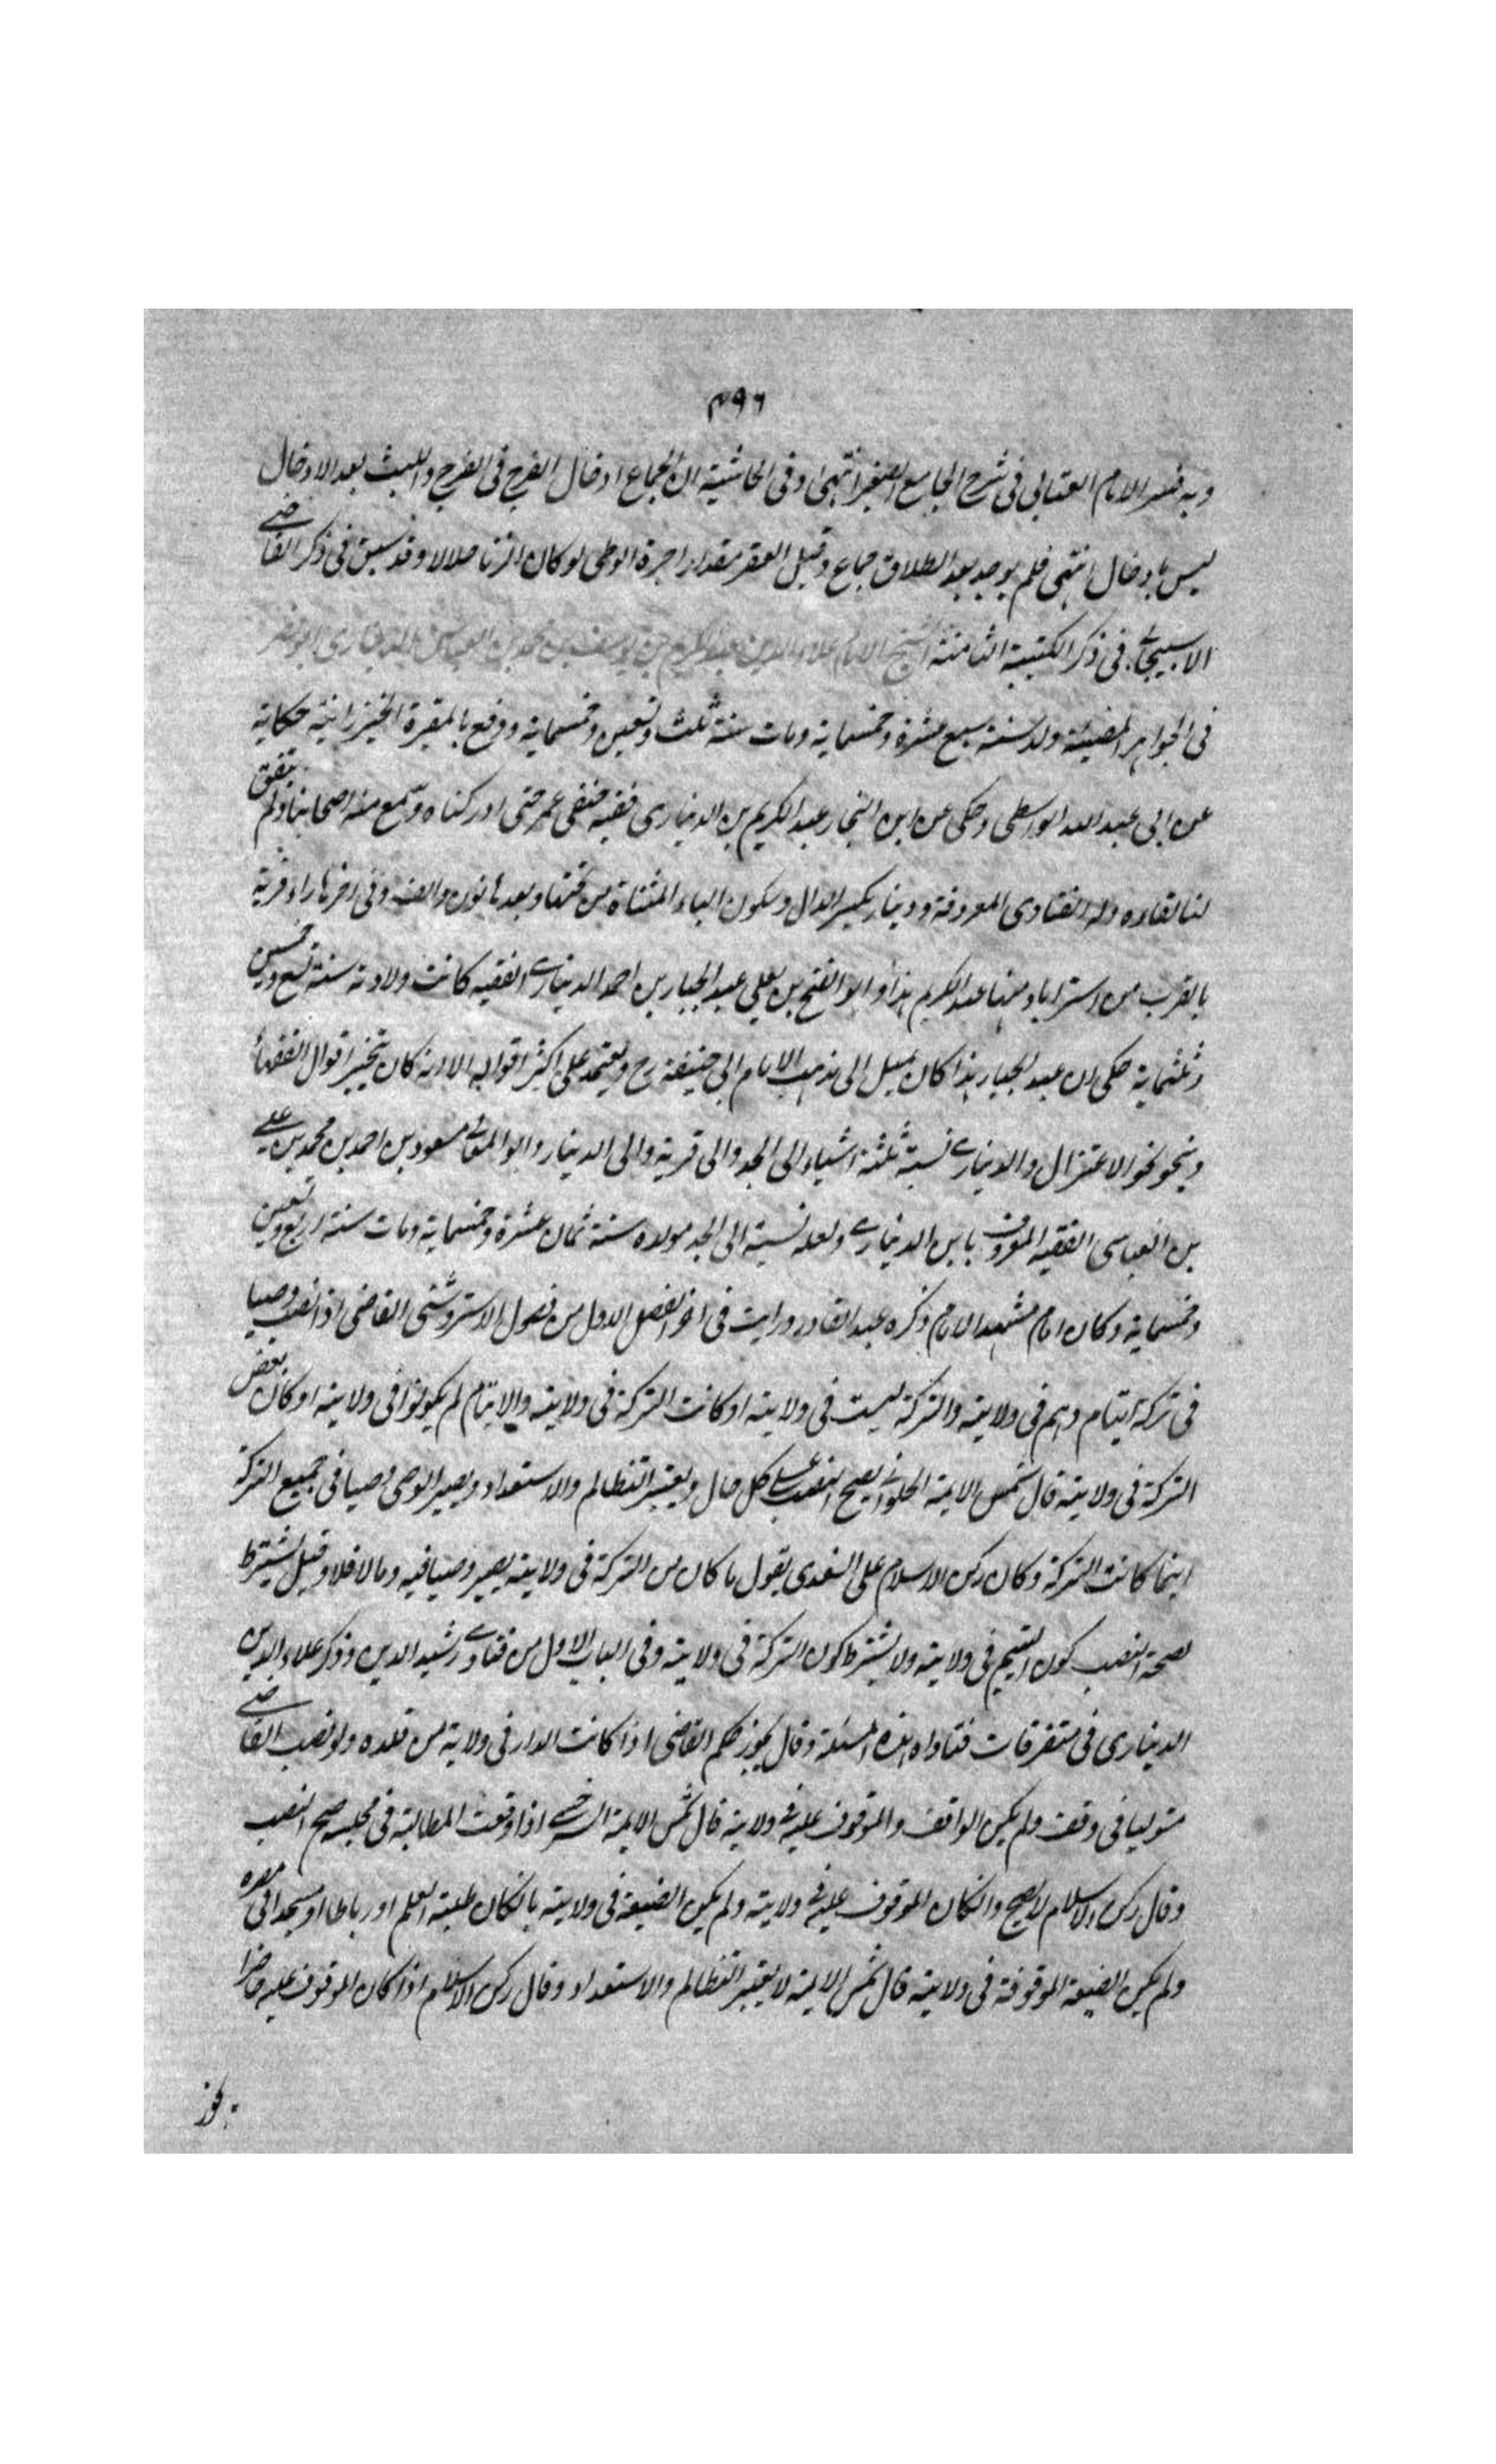 ٤٩٦
وبه فسر الامام العتابي في شرح الجامع الصغير انتهى وفي الحاشية ان الجماع ادخال الفرج في الفرج واللبث بعد الادخال
ليس بادخال انتهى فلم يوجد بعد الطلاق جماع وقيل العقر مقدار اجرة الوطى لو كان الزنا حلالا وقد سبق في ذكر القاضي
الاسبيجابي في ذكر الكتيبة الثامنة الشيخ الامام علاء الدين عبد الكريم بن يوسف بن محمد بن العباس الديناري ابو نصر
في الجواهر المضيئة ولد سنة سبع عشرة وخمسماية ومات سنة ثلث وتسعين وخمسماية ودفع بالمقبرة الخيزرانية حكاية
عن ابي عبد الله الواسطى وحكى عن ابن النجار عبد الكريم بن الديناري فقيه حنفي عمر حتى ادركناه وسمع منه اصحابنا ولم يتفق
لنا لقاءه وله الفتاوى المعروفة ودينار بكسر الدال وسكون الياء المثناة من تحتها وبعدها نون والف وفي اخرها راء قرية
بالقرب من استراباد منها عبد الكريم هذا وابو الفتح بن يعلي عبد الجبار بن احمد الديناري الفقيه كانت ولادته سنة تسع وخمسين
وثلثماية حكى ان عبد الجبار هذا كان يميل الى مذهب الامام ابي حنيفة رح ويعتمد على اكثر اقواله الا انه كان يتخير اقوال الفقهاء
وينحو نحو الاعتزال والديناري نسبة ثلثة اشياء الى الجد والى قرية والى الدينار وابو المعالي مسعود بن احمد بن محمد بن علي
بن العباسي الفقيه المعروف بابن الديناري ولعله نسبة الى الجد مولده سنة ثمان عشرة وخمسماية ومات سنة اربع وتسعين
وخمسماية وكان امام مشهد الامام ذكره عبد القادر ورايت في اخر الفصل الاول من فصول الاستروشنى القاضي اذا نصب وصيا
في تركة ايتام وهم في ولايته والتركة ليست في ولايته او كانت التركة في ولايته والايتام لم يكونوا في ولايته او كان بعض
التركة في ولايته قال شمس الايمة الحلواني يصح النصب على كل حال ويعتبر التظالم والاستعداد ويصير الوصى وصيا في جميع التركة
اينما كانت التركة وكان ركن الاسلام على السغدى يقول ما كان من التركة في ولايته يصير وصيا فيه وما لا فلا وقيل يشترط
لصحة النصب كون اليتيم في ولايته ولا يشترط كون التركة في ولايته وفي الباب الاول من فتاوى رشيد الدين وذكر علاء الدين
الديناري في متفرقات فتاواه هذه المسئلة وقال يجوز حكم القاضي اذا كانت الدار في ولاية من قلده ولو نصب القاضي
متوليا في وقف ولم يكن الواقف والموقوف عليه في ولايته قال شمس الايمة السرخسي اذا وقعت المطالبة في مجلسه صح النصب
وقال ركن الاسلام لا يصح وان كان الموقوف عليه في ولايته ولم يكن الضيعة في ولايته بان كان طلبة العلم او رباطا او مسجدا في مصره
ولم يكن الضيعة الموقوفة في ولايته قال شمس الايمة لا يعتبر التظالم والاستعداد وقال ركن الاسلام اذا كان الموقوف عليه حاضرا
يجوز